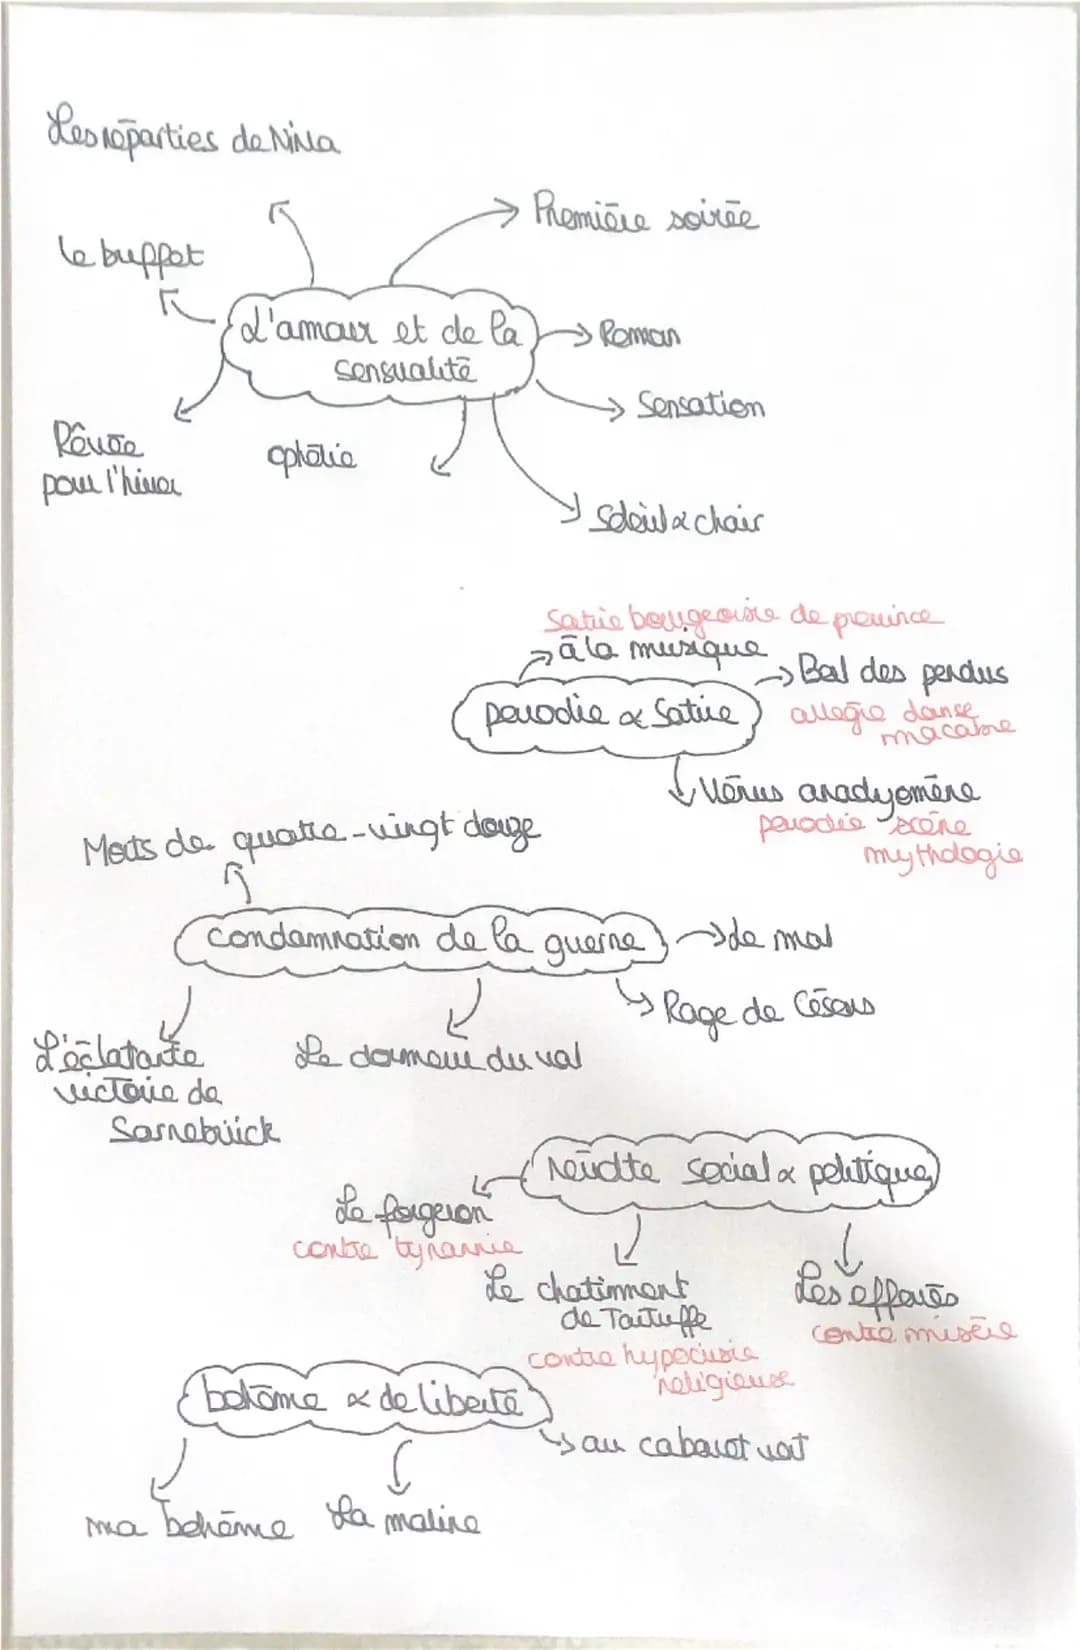 Les réparties de Nina
Première soirée
le buffet
d'amour et de la
sensualité
Roman
Sensation
Rêvée
pour l'hiver
ophélie
Soleil & chair
Satire bourgeoisie de province
à la musique
Bal des pendus
parodie & Satire
allégie danse
macabre
Vénus anadyomène
parodie scène
mythologie
Morts de quatre-vingt douze
condamnation de la guerre
de mal
Rage de Césars
L'éclatante
victoire de
Sarrebrück
Le dormeur du val
révolte social & politique
Le forgeron
contre tyrannie
Le chatimment
de Tartuffe
contre hypocrisie
religieuse
Les effarés
contre misère
bohème & de liberté
au cabaret vert
ma bohème
La maline